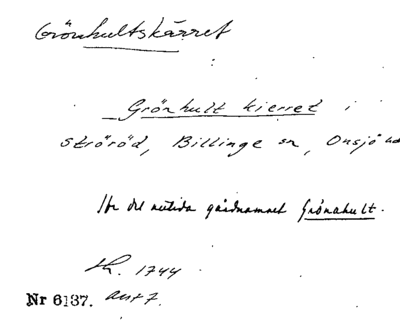 Grönhultskärret
Grönhult kierret i
Ströröd, Billinge sn, Onsjö hd
Jfr det nutida gårdnamnet Grönahult.
Lh. 1744
Nr 6137. ant 7.